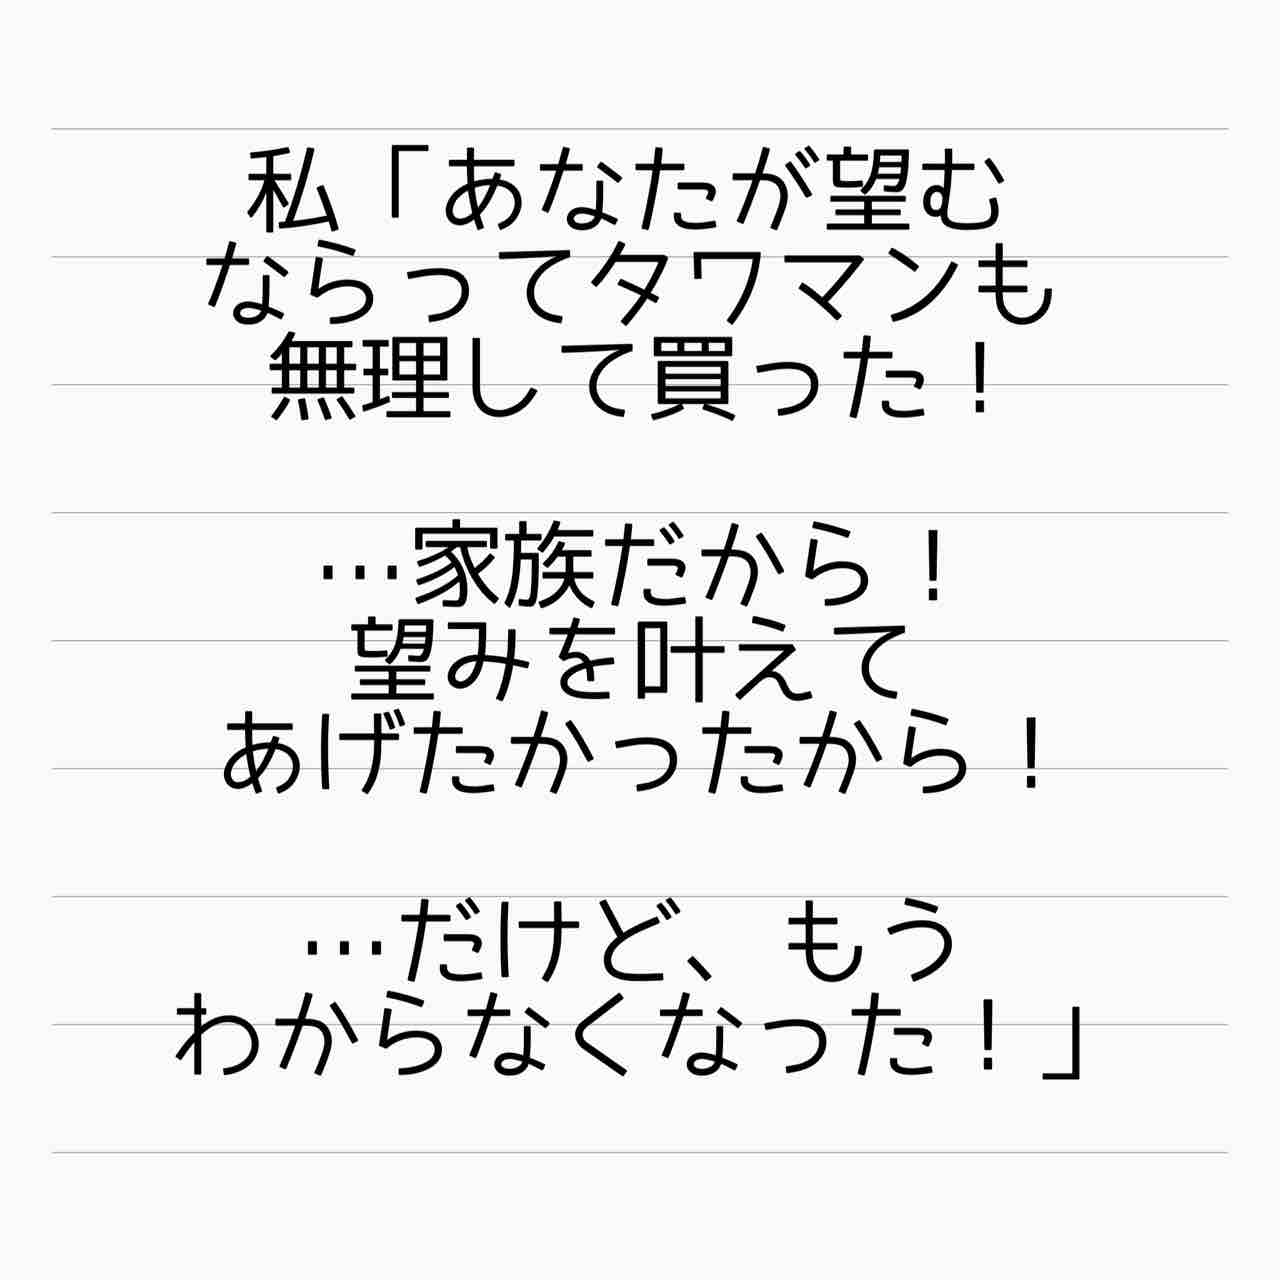 私「あなたが望む
ならってタワマンも
無理して買った！
…家族だから！
望みを叶えて
あげたかったから！
…だけど、もう
わからなくなった！」